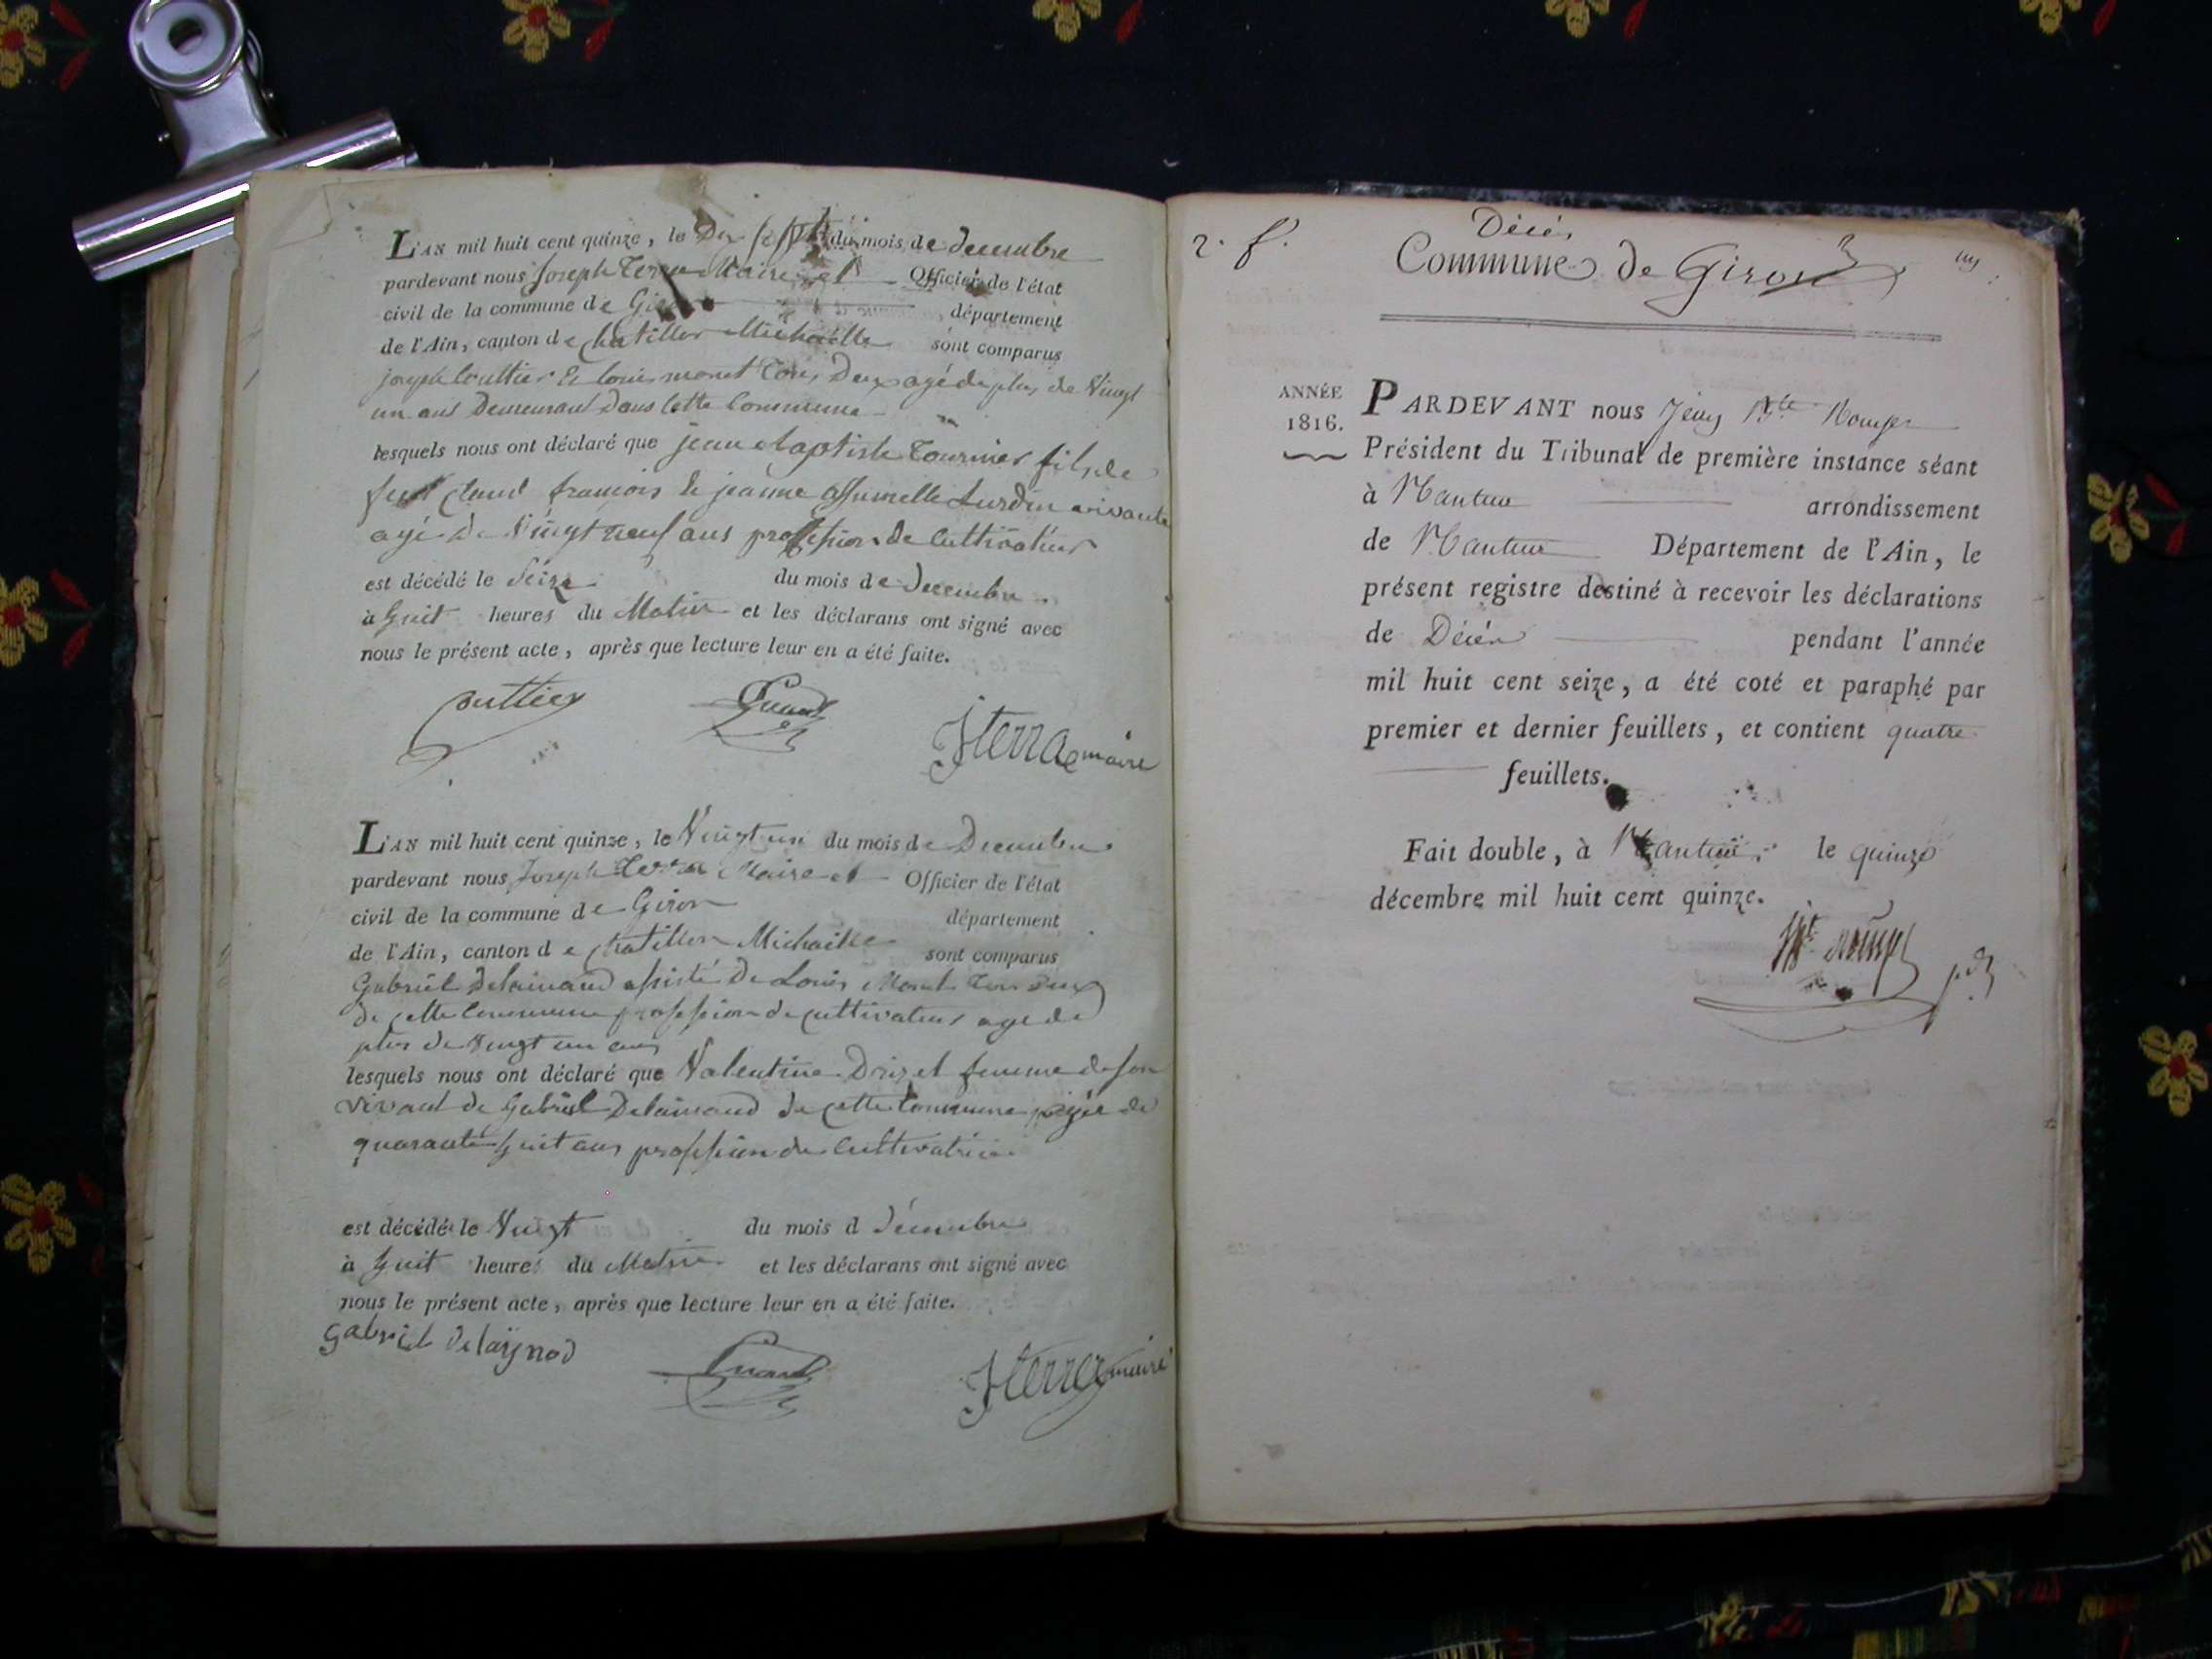 L'AN mil huit cent quinze, le Dix sept du mois de decembre
pardevant nous Joseph Terra Maire et Officier de l'état
civil de la commune de Giron département
de l'Ain, canton de Chatillon Michaille sont comparus
joseph Couttier Et Louis monet tous Deux agé de plus de Vingt
un ans Demeurant Dans Cette Commune
lesquels nous ont déclaré que jean Baptiste Tournier fils de
feu Claud françois Et jeanne Lurdin vivante
agé de Vingt neuf ans profession de Cultivateur
est décédé le Seize du mois de Decembre
à huit heures du Matin et les déclarans ont signé avec
nous le présent acte, après que lecture leur en a été faite.
Couttier
JTerra maire
L'AN mil huit cent quinze, le Vingt un du mois de Decembre
pardevant nous Joseph Terra Maire et Officier de l'état
civil de la commune de Giron département
de l'Ain, canton de Chatillon Michaille sont comparus
Gabriel Delainaud assisté De Louis Monet tous Deux
De cette Commune profession de cultivateur age de
plus de Vingt un ans
lesquels nous ont déclaré que Valentine femme de son
vivant de Gabriel Delainaud de cette Commune agée de
quarante huit ans profession de Cultivatrice
est décédé le Vingt du mois d Décembre
à huit heures du Matin et les déclarans ont signé avec
nous le présent acte, après que lecture leur en a été faite.
gabriel Delaynod
JTerra maire
2. f.
Décès
Commune de Giron
ANNÉE
1816.
PARDEVANT nous Jean Bte
Président du Tribunal de première instance séant
à Nantua arrondissement
de Nantua Département de l'Ain, le
présent registre destiné à recevoir les déclarations
de Décès pendant l'année
mil huit cent seize, a été coté et paraphé par
premier et dernier feuillets, et contient quatre
feuillets.
Fait double, à Nantua, le quinze
décembre mil huit cent quinze.